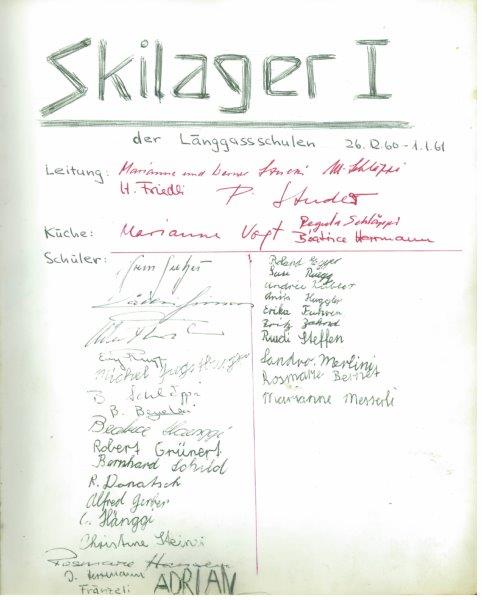 Skilager I
der Länggassschulen 26.12.60 - 1.1.61
Leitung: Marianne und Werner M. Schläppi
H. Friedli P. Studer
Küche: Marianne Vogt Regula Schläppi
Béatrice Herrmann
Schüler:
Michel
B. Schläppi
B. Beyeler
Beatrice Hänggi
Robert Grünert
Bernhard Schild
R. Donatsch
Alfred Gerber
C. Hänggi
Christine Steiner
Rosmarie Hansen
J. Herrmann ADRIAN
Fränzeli
Roland Egger
Susi Rüegg
Andrée Kübler
Anni Huggler
Erika Fuhrer
Fritz Zahnd
Ruedi Steffen
Sandro Merlini
Rosmarie Berner
Marianne Messerli